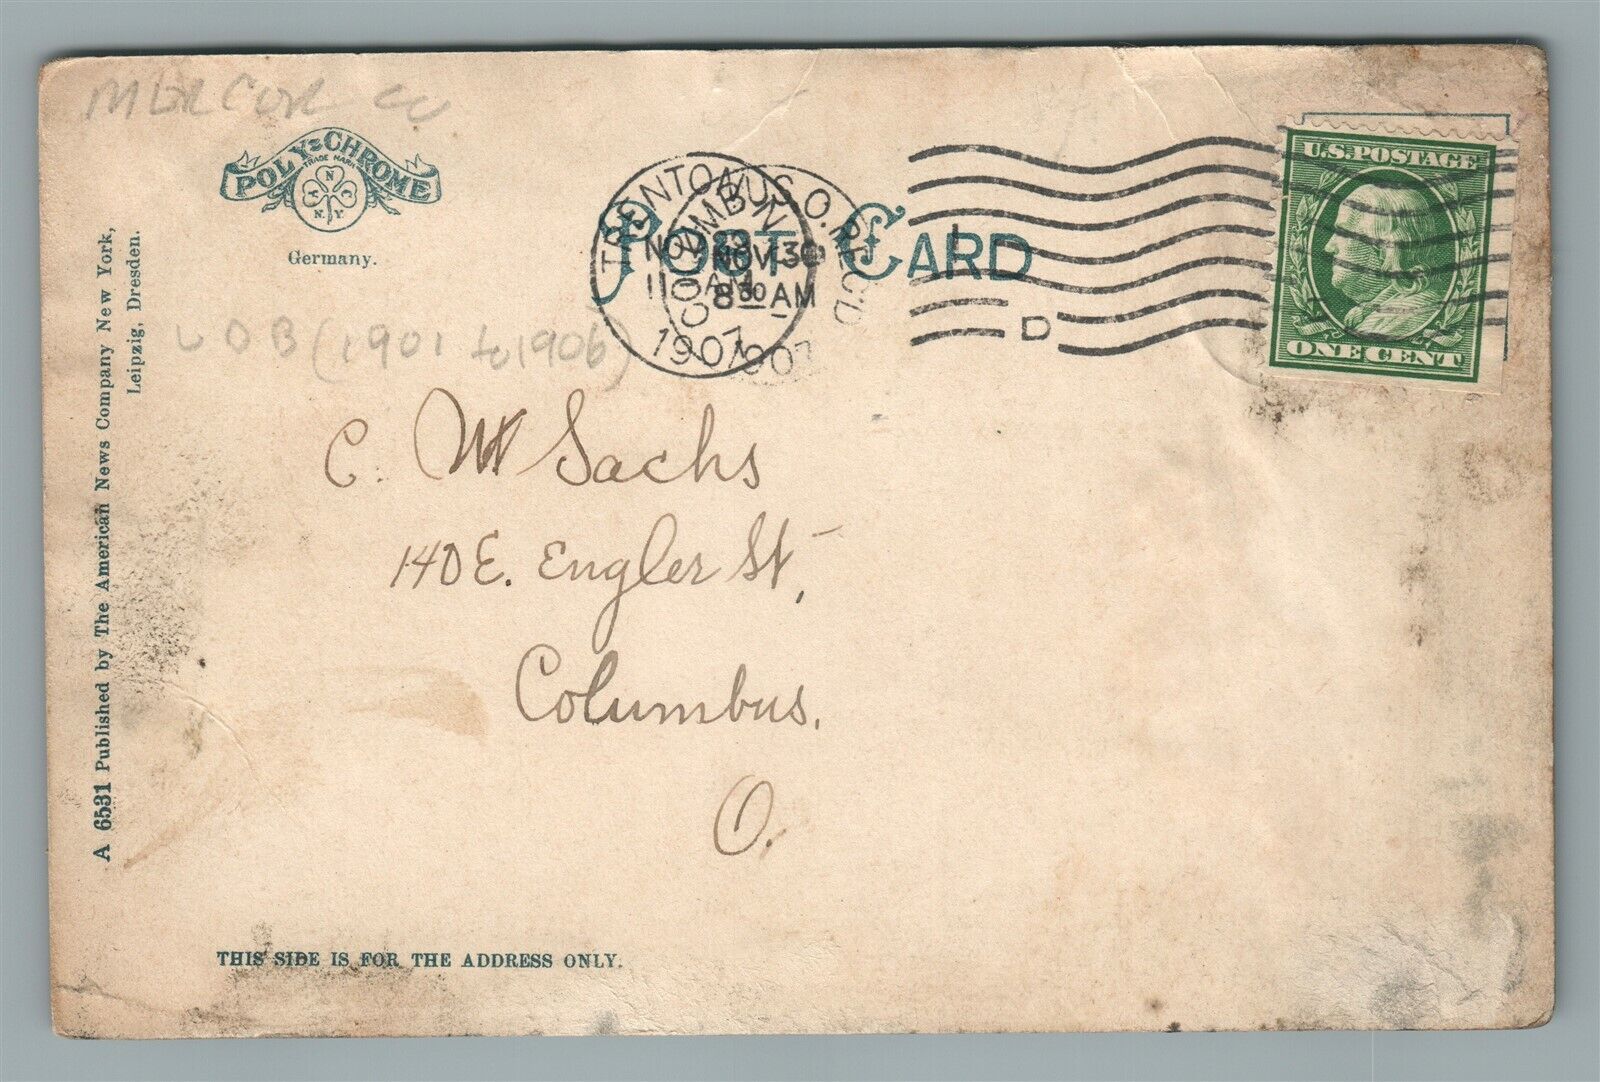 MERCER CO
POLY-CHROME
TRADE MARK
N
N.Y.
Germany.
POST CARD
TRENTON
N.J.
NOV
11 AM
1907
COLUMBUS, O. REC'D
NOV 30
8 30 AM
1907
D
U.S. POSTAGE
ONE CENT
UDB (1901 to 1906)
C. W Sachs
140 E. Engler St,
Columbus.
O.
A 6531 Published by The American News Company New York,
Leipzig, Dresden.
THIS SIDE IS FOR THE ADDRESS ONLY.